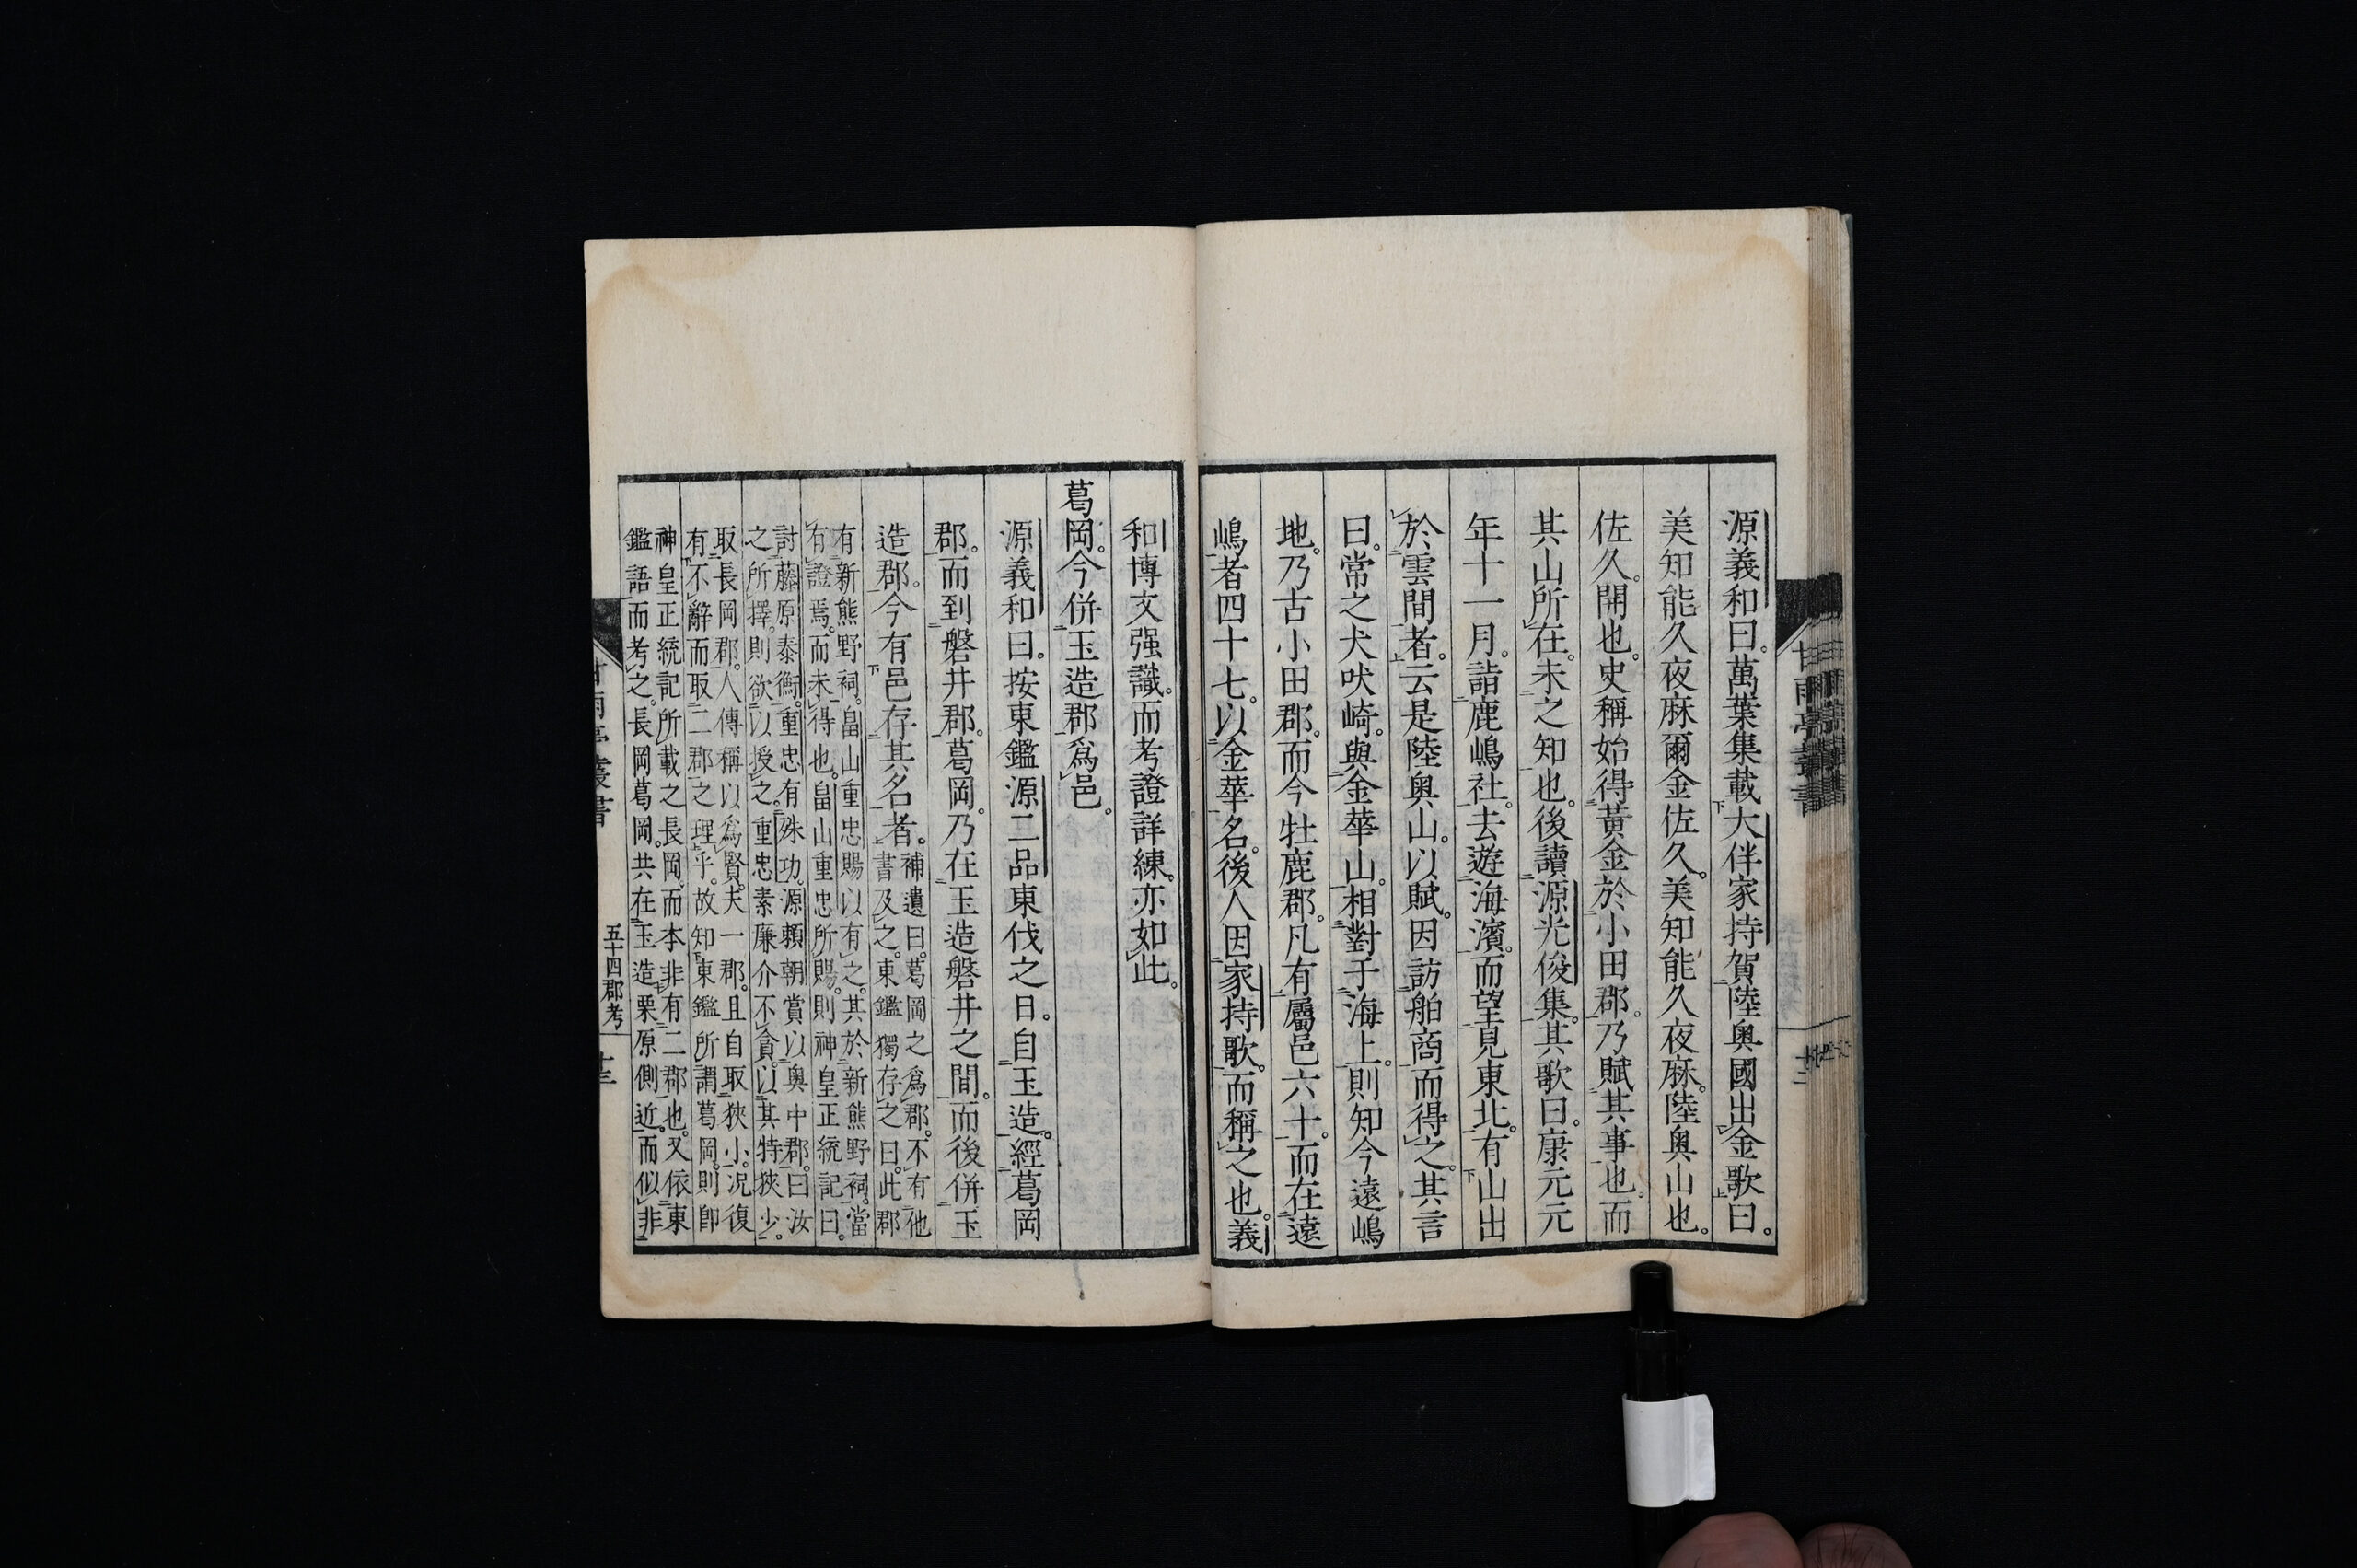 源義和曰。萬葉集載大伴家持賀陸奥國出金歌曰。
美知能久夜麻爾金佐久。美知能久夜麻。陸奥山也。
佐久。開也。史稱始得黄金於小田郡。乃賦其事也。而
其山所在。未之知也。後讀源光俊集。其歌曰。康元元
年十一月。詣鹿嶋社。去遊海濱。而望見東北。有山出
於雲間者。云是陸奥山。以賦。因訪舶商而得之。其言
曰。常之犬吠崎。與金華山。相對于海上。則知今遠嶋
地。乃古小田郡。而今牡鹿郡。凡有屬邑六十。而在遠
嶋者四十七。以金華名。後人因家持歌。而稱之也。義
和博文强識。而考證詳練。亦如此。
葛岡。今併玉造郡爲邑。
源義和曰。按東鑑源二品東伐之日。自玉造。經葛岡
郡。而到磐井郡。葛岡。乃在玉造磐井之間。而後併玉
造郡。今有邑存其名者。補遺曰。葛岡之爲郡。不有他
書及之。東鑑獨存之曰。此郡
有新熊野祠。畠山重忠賜以有之。其於新熊野祠。當
有證焉。而未得也。畠山重忠所賜。則神皇正統記曰。
討藤原泰衡。重忠有殊功。源頼朝賞以奥中郡。曰汝
之所擇。則欲以授之。重忠素廉介不貪。以其特狹少。
取長岡郡。人傳稱以爲賢。夫一郡。且自取狹小。况復
有不辭而取二郡之理乎。故知東鑑所謂葛岡。則卽
神皇正統記所載之長岡。而本非有二郡也。又依東
鑑語而考之。長岡葛岡。共在玉造栗原側近。而似非
五十四郡考